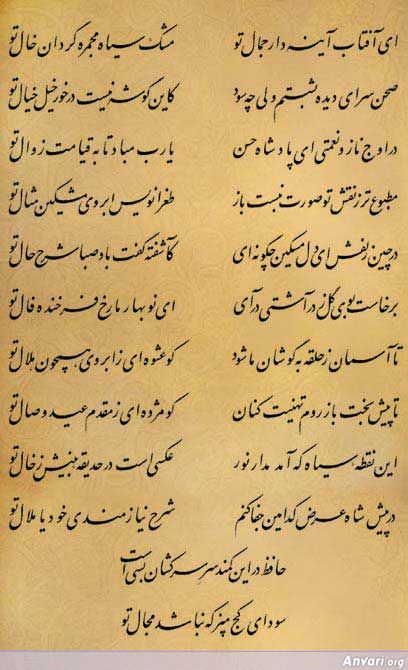 ای آفتاب آینه دار جمال تو مشک سیاه مجمره گردان خال تو
صحن سرای دیده بشستم ولی چه سود کاین گوشه نیست در خور خیل خیال تو
در اوج ناز و نعمتی ای پادشاه حسن یا رب مباد تا به قیامت زوال تو
مطبوع تر ز نقش تو صورت نبست باز طغرانویس ابروی مشکین مثال تو
در چین زلفش ای دل مسکین چگونه ای کآشفته گفت باد صبا شرح حال تو
برخاست بوی گل ز در آشتی درآی ای نوبهار ما رخ فرخنده فال تو
تا آسمان ز حلقه به گوشان ما شود کو عشوه ای ز ابروی همچون هلال تو
تا پیش بخت باز روم تهنیت کنان کو مژده ای ز مقدم عید وصال تو
این نقطه سیاه که آمد مدار نور عکسی است در حدیقه بینش ز خال تو
در پیش شاه عرض کدامین جفا کنم شرح نیازمندی خود یا ملال تو
حافظ در این کمند سر سرکشان بسی است
سودای کج مپز که نباشد مجال تو
Anvari.org